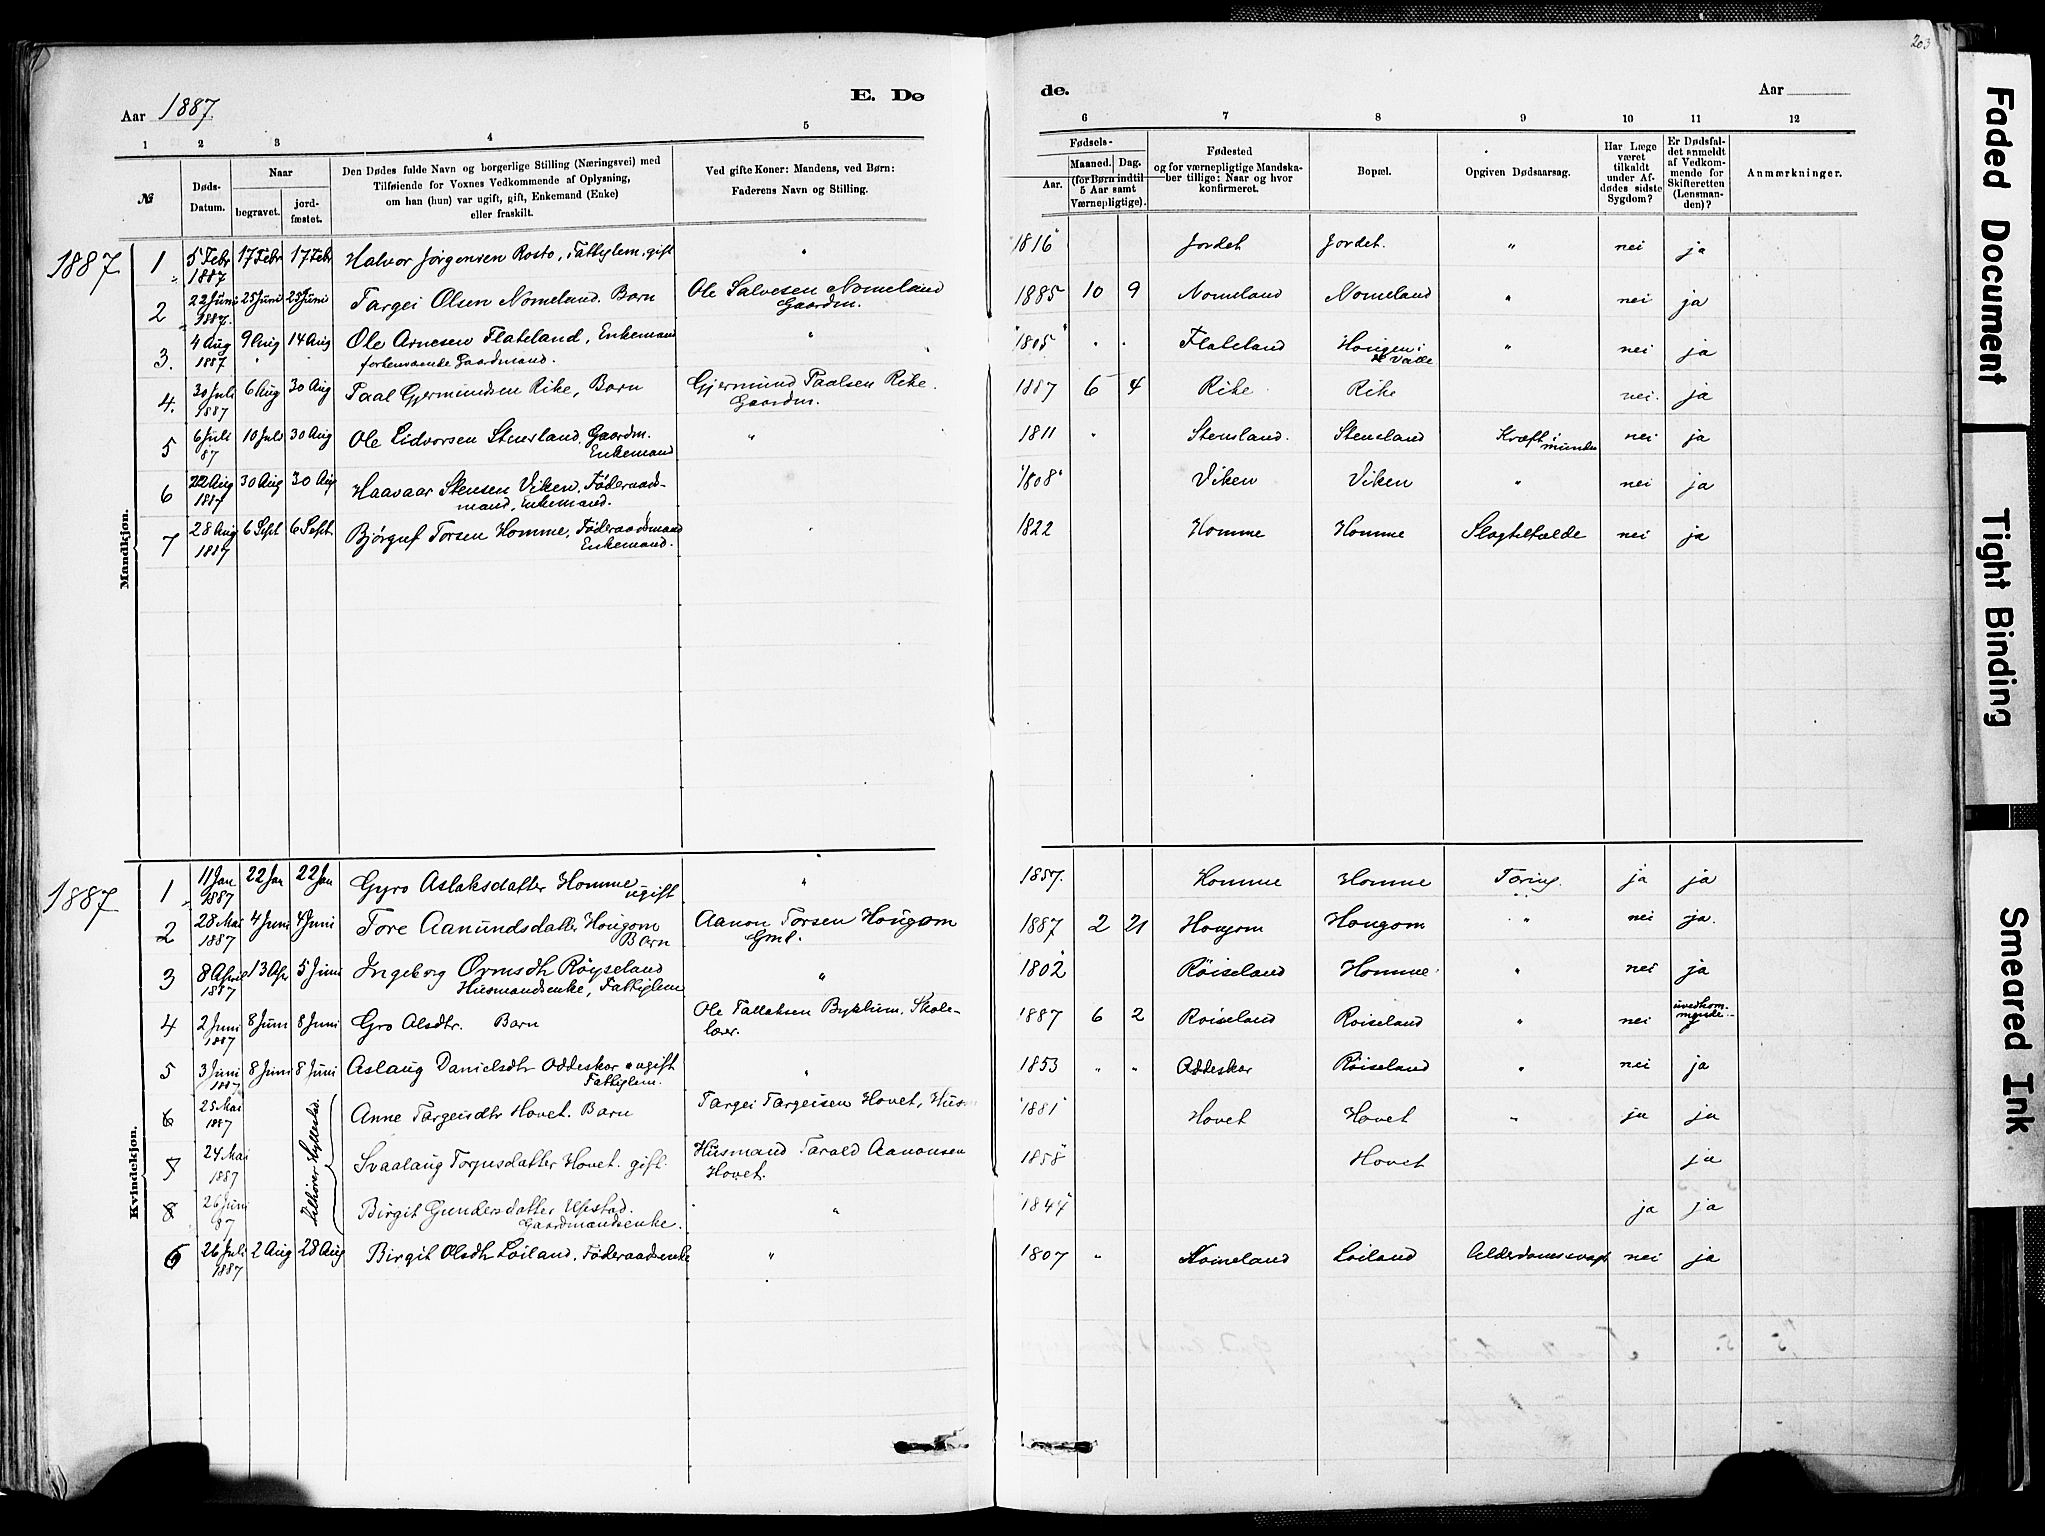 203
E. Dø
de.
Aar 1887.
Aar
1 2 3 4 5 6 7 8 9 10 11 12
№
Døds-
Datum.
Naar
begravet.
jord-
fæstet.
Den Dødes fulde Navn og borgerlige Stilling (Næringsvei) med
Tilføiende for Voxnes Vedkommende af Oplysning,
om han (hun) var ugift, gift, Enkemand (Enke)
eller fraskilt.
Ved gifte Koner: Mandens, ved Børn:
Faderens Navn og Stilling.
Fødsels-
Aar.
Maaned. Dag.
(for Børn indtil
5 Aar samt
Værnepligtige).
Fødested
og for værnepligtige Mandska-
ber tillige: Naar og hvor
konfirmeret.
Bopæl.
Opgiven Dødsaarsag.
Har Læge
været
tilkaldt
under Af-
dødes sidste
Sygdom?
Er Dødsfal-
det anmeldt
af Vedkom-
mende for
Skifteretten
(Lensman-
den)?
Anmærkninger.
Mandkjøn.
1887
1 5 Febr 1887 17 Febr 17 Febr Halvor Jørgensen Rosto, Fattiglem, gift " 1816 Jordet Jordet. " nei ja
2 22 Juni 1887. 25 Juni 25 Juni Targei Olsen Nomeland. Barn Ole Salvesen Nomeland
Gaardm. 1885 10 9 Nomeland Nomeland " nei ja
3. 4 Aug 1887 9 Aug 14 Aug Ole Arnesen Flateland, Enkemand
forhenværende Gaardmand. " 1805 " " Flateland Hougen i
Valle " nei ja
4. 30 Juli 1887 6 Aug 30 Aug Paal Gjermundsen Rike, Barn Gjermund Paalsen Rike.
Gaardm. 1887 6 4 Rike Rike nei. ja
5 6 Juli 87 10 Juli 30 Aug Ole Lidvorsen Stensland. Gaardm.
Enkemand " 1811 " Stensland. Stensland Kræft i
munden nei ja
6 22 Aug 1887 30 Aug 30 Aug Haavaar Stensen Viken, Føderaad-
mand, Enkemand. 1808 Viken Viken " nei ja
7 28 Aug 1887 6 Sept 6 Sept. Bjørguf Torsen Homme, Føderaadsmand
Enkemand. 1822 Homme Homme Slagtilfælde nei ja
Kvindekjøn.
1887
1 11 Jan 1887 22 Jan 22 Jan Gyro Aslaksdatter Homme
ugift " 1857. Homme Homme Tæring. ja ja
2 28 Mai 1887 4 Juni 4 Juni Tore Aanundsdatter Hougom
Barn Aanon Torsen Hougom
Gmd. 1887 2 21 Hougom Hougom " nei ja.
3 8 April 1887 13 Apr 5 Juni Ingeborg Ormsdtr Røyseland
Husmandsenke, Fattiglem " 1802 Røiseland Homme " nei ja
4 2 Juni 1887 8 Juni 8 Juni Gro Olsdtr. Barn Ole Tallaksen Bykkum, Skole-
lærer. 1887 6 2 Røiseland Røiseland " nei uvedkom-
mende
5 3 Juni 1887 8 Juni 8 Juni Aslaug Danielsdtr Oddeskar ugift
Fattiglem. " 1853 " " Oddeskar Røiseland " nei ja
6 25 Mai 1887 Tilhører Hyllestad. Anne Targeisdtr Hovet. Barn Targei Targeisen Hovet, Husm 1881 Hovet Hovet " ja ja
7 24 Mai 1887 Svaalaug Torjusdatter Hovet. gift. Husmand Tarald Aanonsen
Hovet. 1858 Hovet ja
8 26 Juni 87 Birgit Gundersdatter
Gaardmandsenke. " 1847 ja ja
6 26 Juli 1887 2 Aug 28 Aug Birgit Olsdtr Løiland, Føderaadsenke " 1807 " Nomeland Løiland Alderdomssvagh nei ja
Faded Document
Tight Binding
Smeared Ink